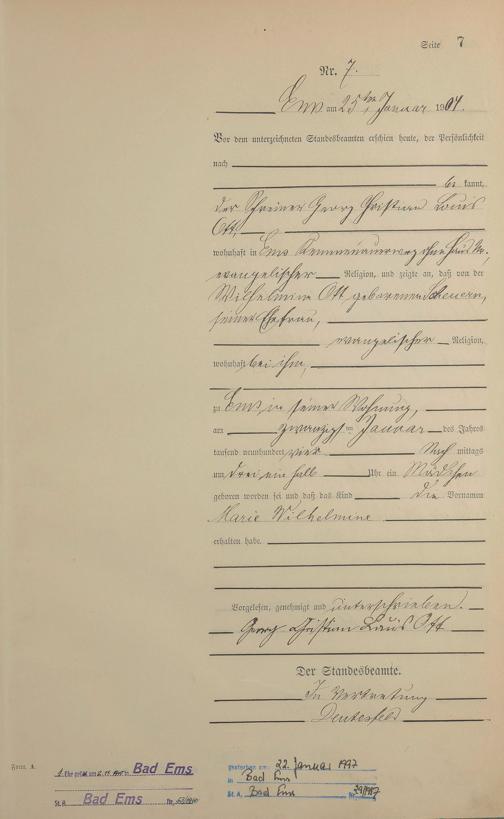 Seite 7
Nr. 7.
Ems am 25ten Januar 1904.
Vor dem unterzeichneten Standesbeamten erschien heute, der Persönlichkeit
nach
be kannt,
der Schreiner Georg Christian Louis
Ott,
wohnhaft in Ems ohne Haus No.,
evangelischer Religion, und zeigte an, daß von der
Wilhelmine Ott geborenen Scheuern,
seiner Ehefrau,
evangelischer Religion,
wohnhaft bei ihm,
zu Ems in seiner Wohnung,
am zwanzigsten Januar des Jahres
tausend neunhundert vier Nach mittags
um drei ein halb Uhr ein Mädchen
geboren worden sei und daß das Kind die Vornamen
Marie Wilhelmine
erhalten habe.
Vorgelesen, genehmigt und unterschrieben.
Georg Christian Louis Ott
Der Standesbeamte.
In Vertretung
Form. A.
Bad Ems
St. A. Bad Ems Nr.
gestorben am: 22. Januar 1997
in Bad Ems
St. A. Bad Ems Nr.